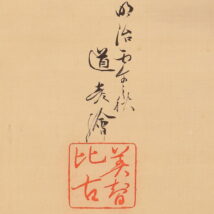 明治丙午秋
道彦繪
美智
比古